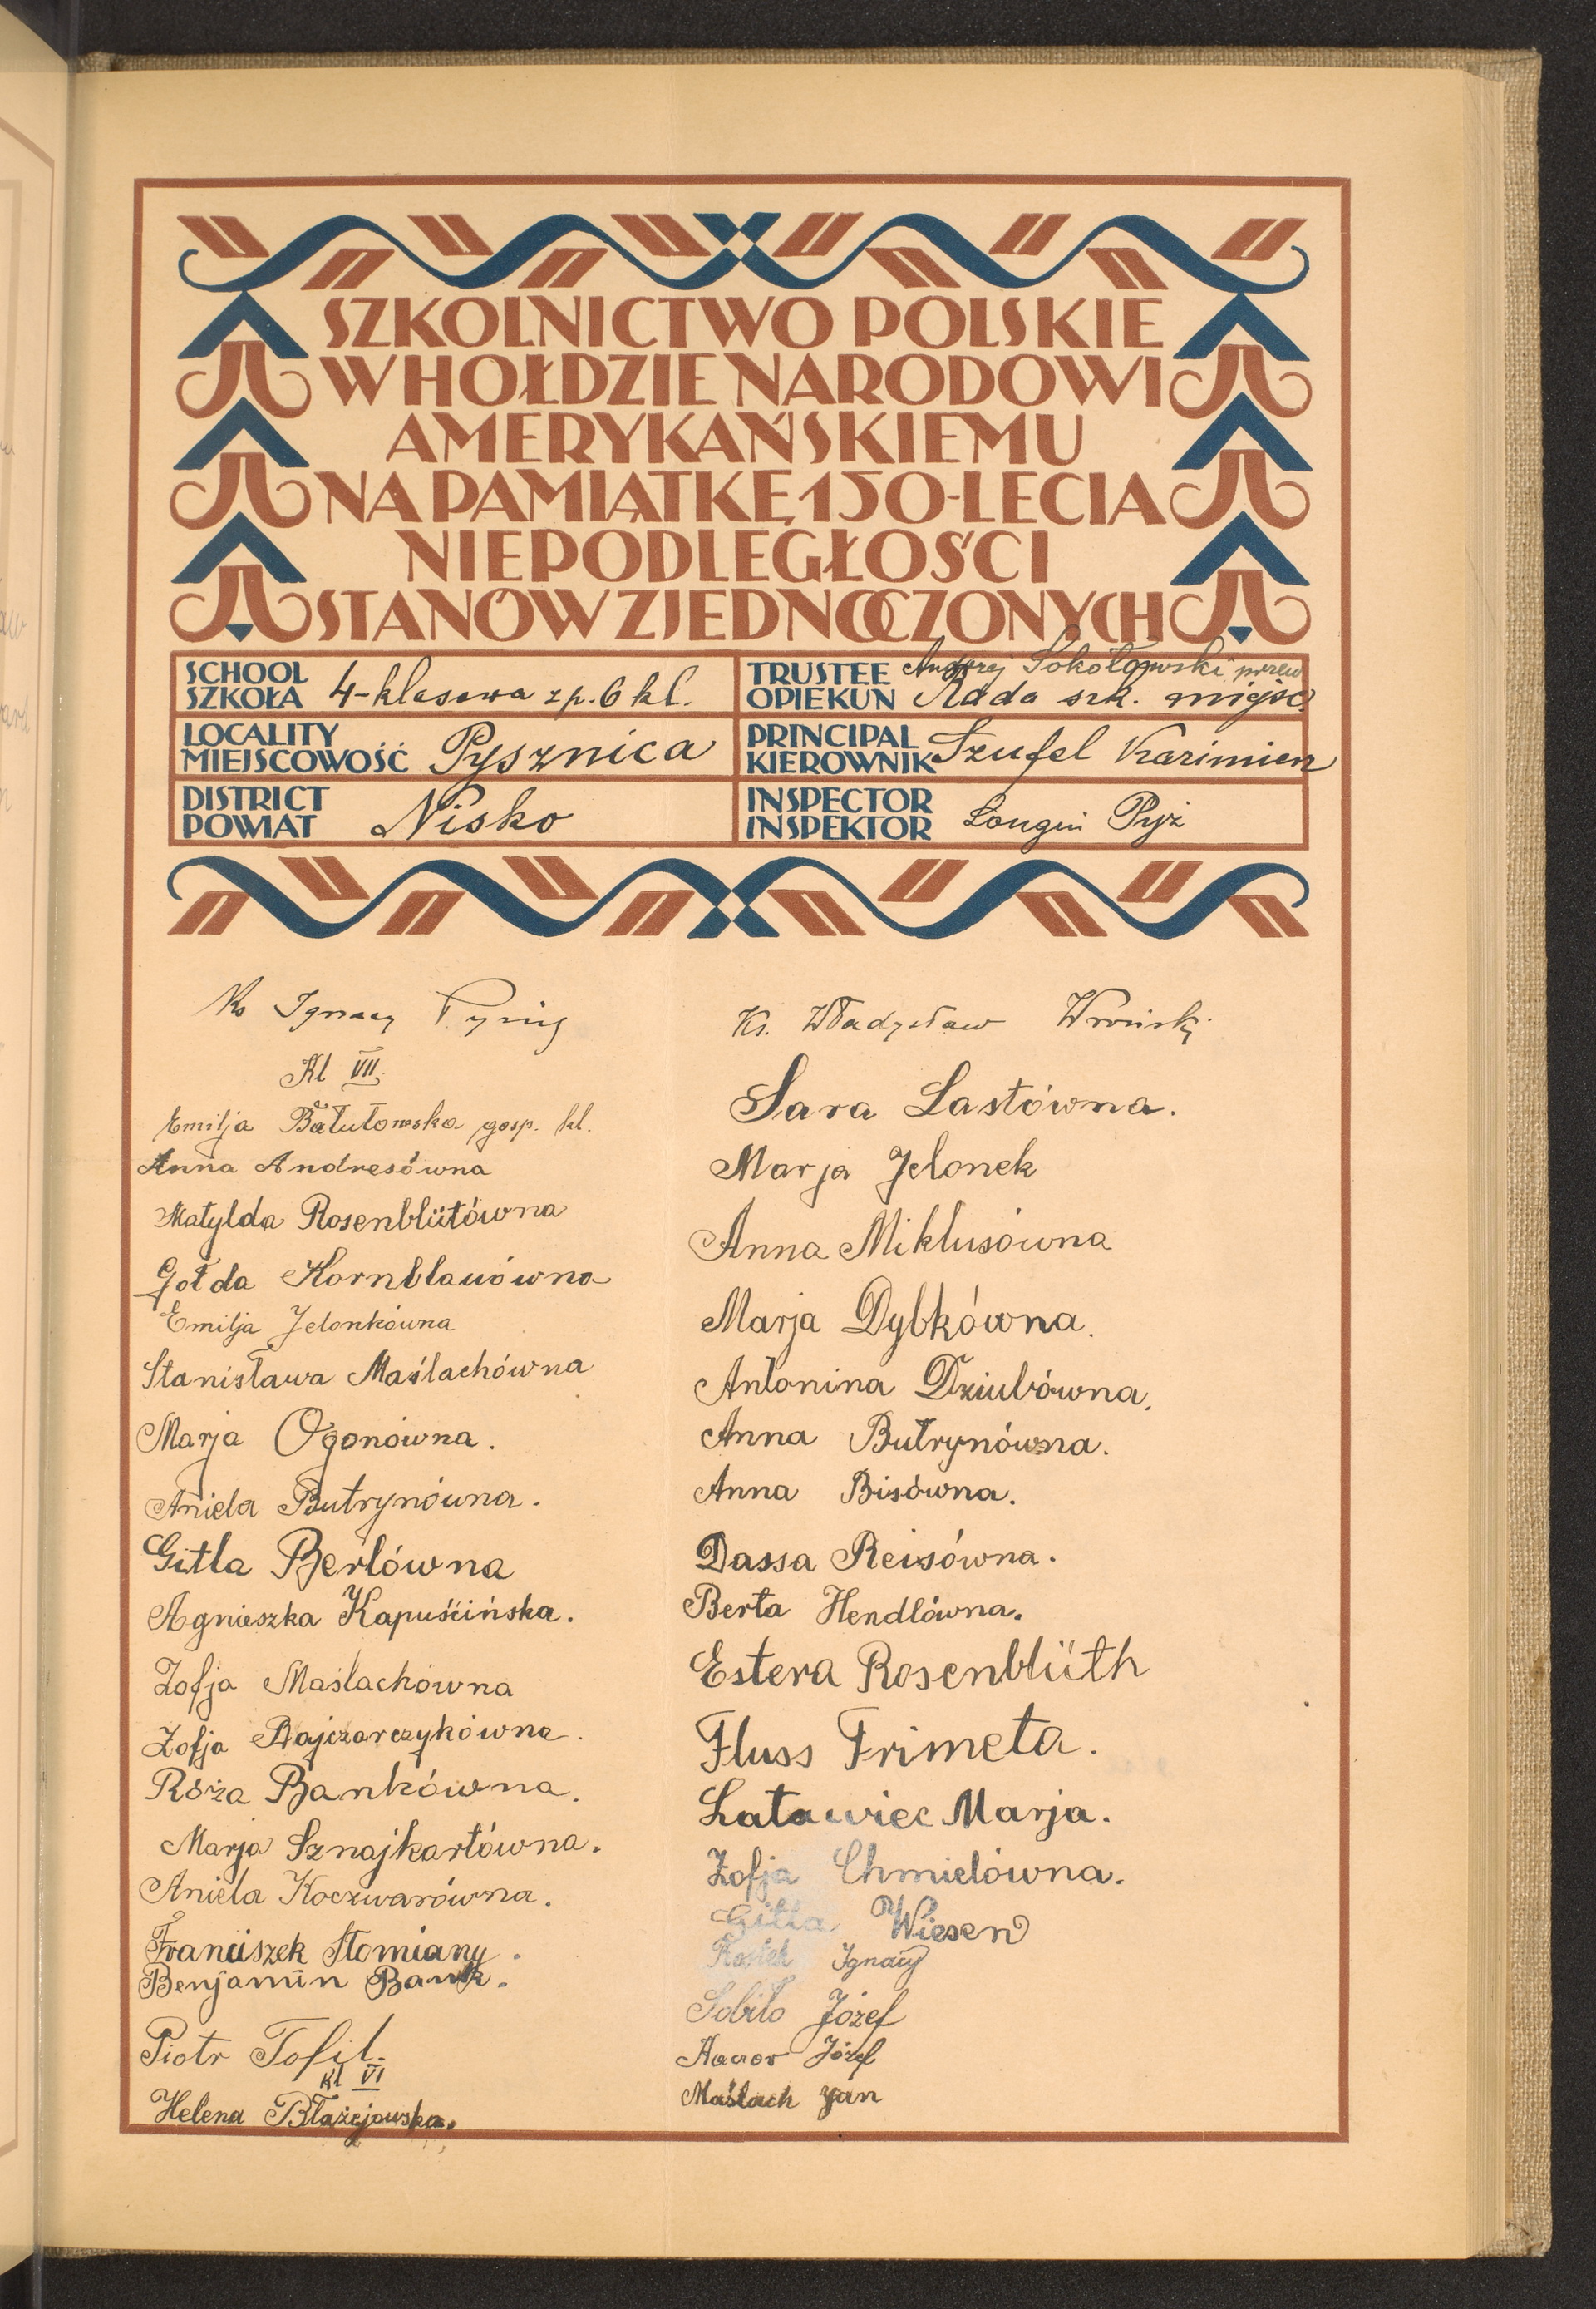 SZKOLNICTWO POLSKIE
W HOŁDZIE NARODOWI
AMERYKAŃSKIEMU
NA PAMIĄTKĘ 150-LECIA
NIEPODLEGŁOŚCI
STANÓW ZJEDNOCZONYCH
SCHOOL
SZKOŁA 4-klasowa z p. 6 kl.
TRUSTEE Andrzej Sokołowski przew
OPIEKUN Rada szk. miejsc.
LOCALITY
MIEJSCOWOŚĆ Pysznica
PRINCIPAL
KIEROWNIK Szufel Kazimierz
DISTRICT
POWIAT Nisko
INSPECTOR
INSPEKTOR Longin Pyż
Ks Ignacy Pyzig
Kl VII.
Emilja Bałutowska gosp. kl.
Anna Andresówna
Matylda Rosenblütówna
Gołda Kornblauówna
Emilja Jelonkówna
Stanisława Maślachówna
Marja Ogonówna.
Aniela Butrynówna.
Gitla Berlówna
Agnieszka Kapuścińska.
Zofja Maślachówna
Zofja Bajczarczykówna.
Róża Bankówna.
Marja Sznajkartówna.
Aniela Koczwarówna.
Franciszek Słomiany.
Benjamin Bank.
Piotr Tofil.
Kl VI
Helena Błażejowska.
Ks. Władysław Wroński
Sara Lastówna.
Marja Jelonek
Anna Miklusówna
Marja Dybkówna.
Antonina Dziubówna.
Anna Butrynówna.
Anna Bisówna.
Dassa Reisówna.
Berta Hendlówna.
Estera Rosenblüth
Fluss Frimeta.
Latawiec Marja.
Zofja Chmielówna.
Gitla Wiesen
Ignacy
Sobiło Józef
Józef
Maślach Jan